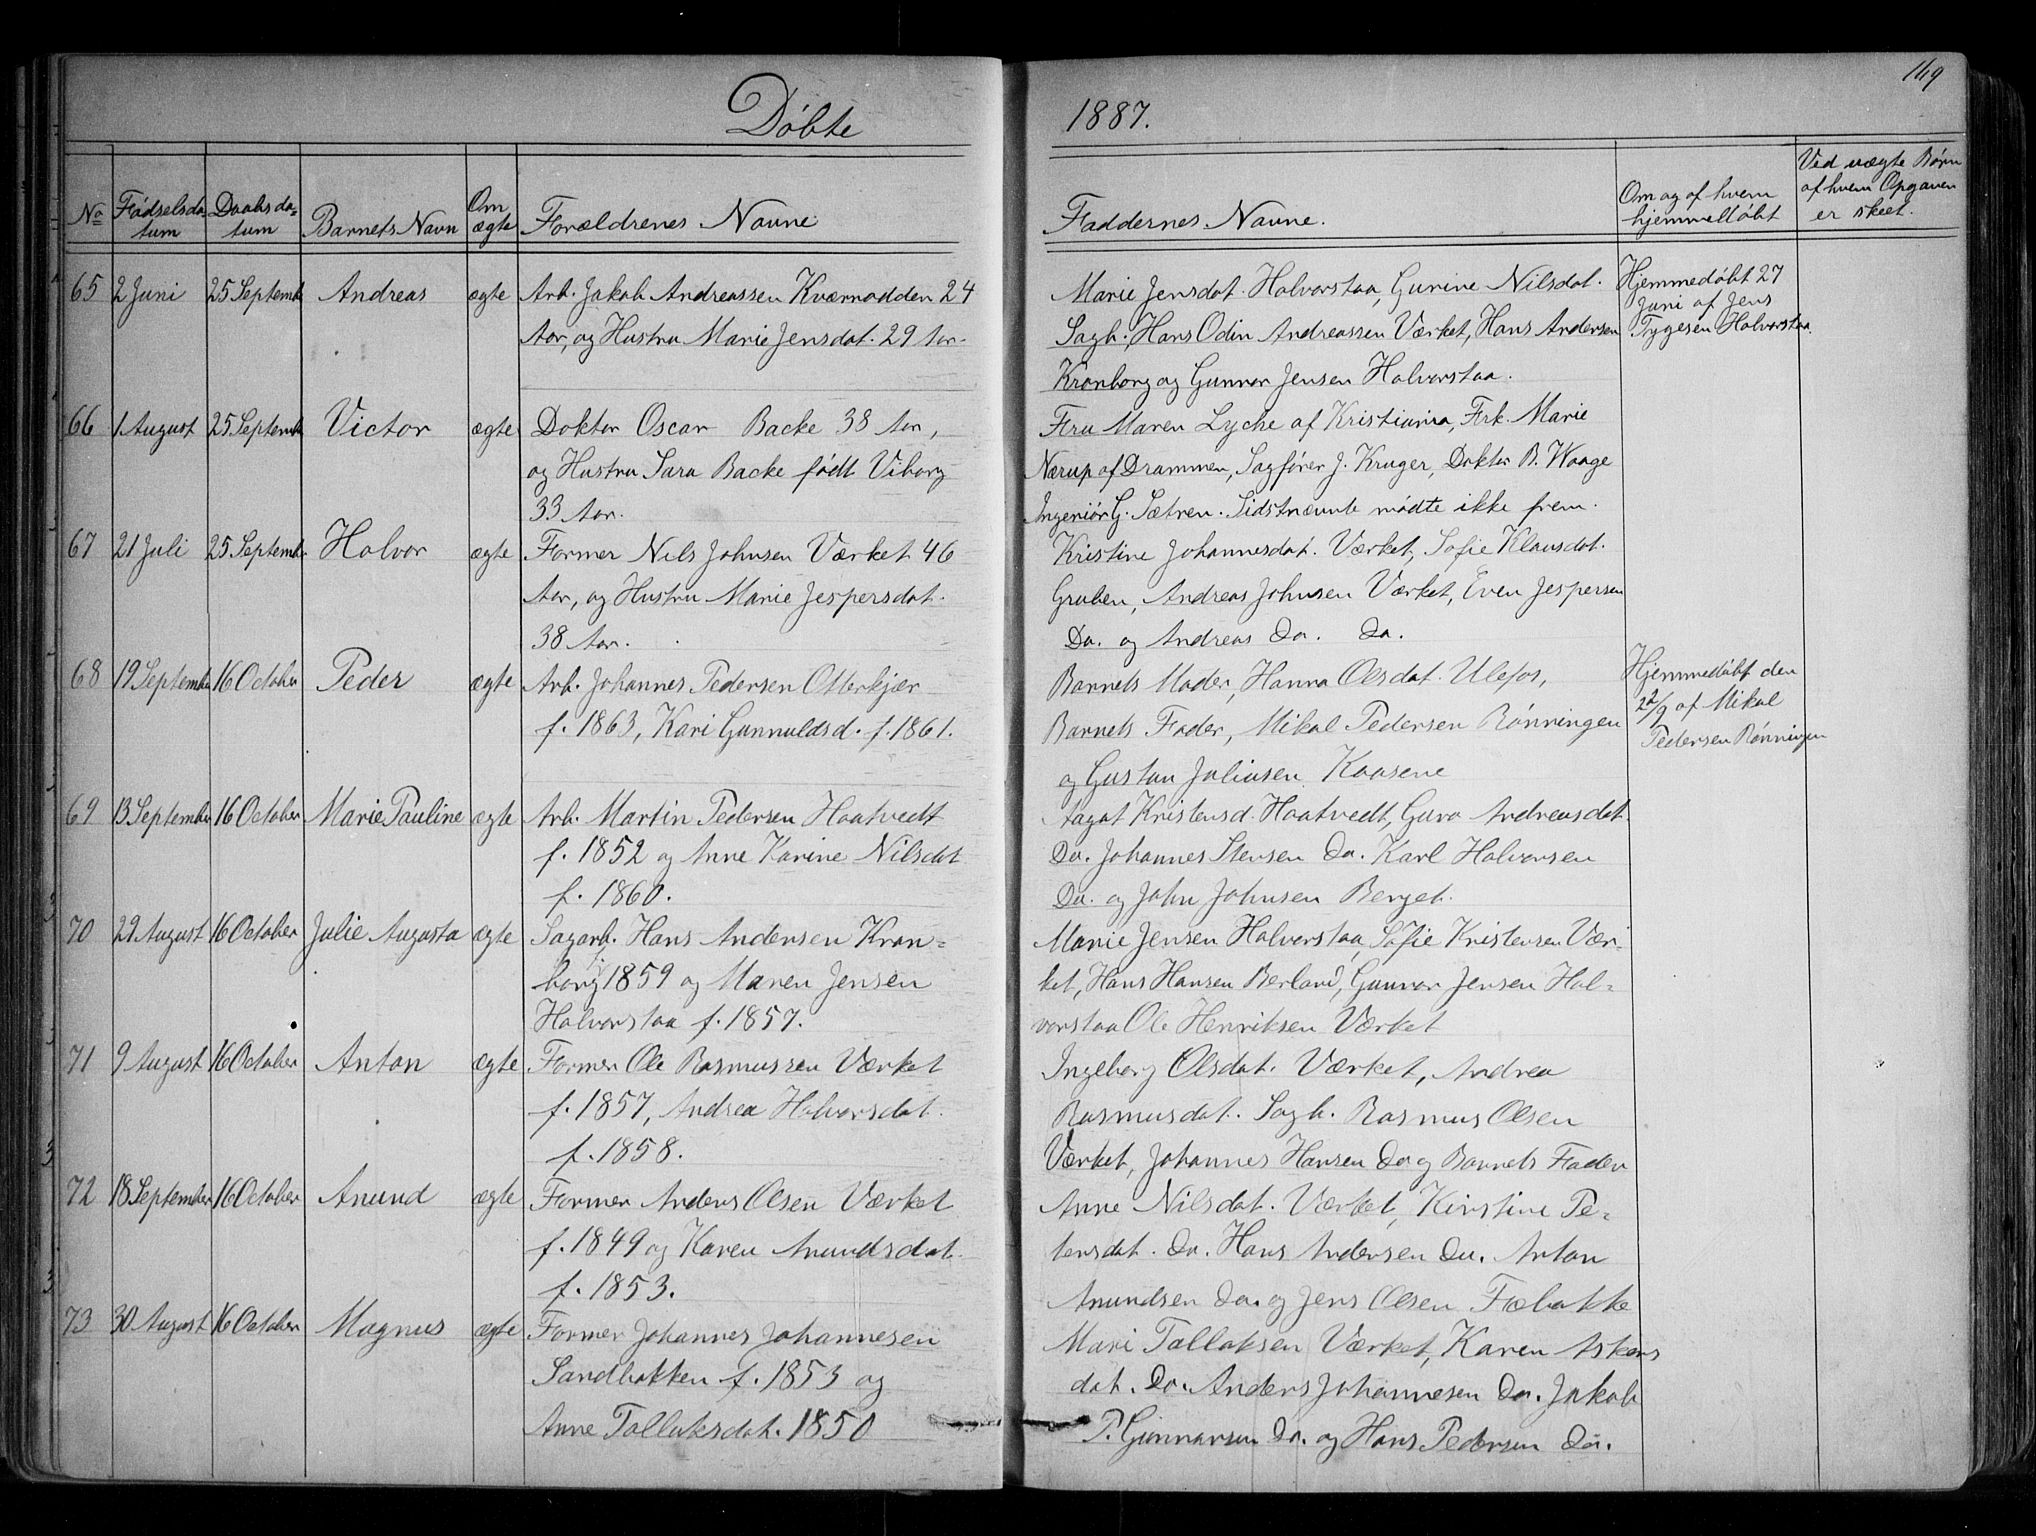 149
Døbte
1887.
No
Fødselsda-
tum
Daabsda-
tum
Barnets Navn
Om
ægte
Forældrenes Navne
Faddernes Navne.
Om og af hvem
hjemmedøbt
Ved uægte Børn
af hvem Opgaven
er skeet.
65 2 Juni 25 Septemb Andreas ægte Arb. Jakob Andreassen Kværnodden 24
Aar, og Hustru Marie Jensdat. 29 Aar.
Marie Jensdat. Halvorstaa, Gurine Nilsdat.
Sagb., Hans Odin Andreassen Værket, Hans Andersen
Kronborg og Gunnar Jensen Halvorstaa.
Hjemmedøbt 27
Juni af Jens
Tygesen Halvorstaa.
66 1 August 25 Septemb Victor ægte Doktor Oscar Backe 38 Aar,
og Hustru Sara Backe født Viborg
33 Aar.
Fru Maren Lyche af Kristiania, Frk. Marie
Nærup af Drammen, Sagfører J. Kruger, Doktor B. Waage
Ingeniør G. Sætren. Sidstnævnte mødte ikke frem.
67 21 Juli 25 Septemb Halvor ægte Former Nils Johnsen Værket 46
Aar, og Hustru Marie Jespersdat.
38 Aar.
Kristine Johannesdat. Værket, Sofie Klausdat.
Gruben, Andreas Johnsen Værket, Even Jespersen
Do. og Andreas Do. Do.
68 19 Septemb 16 October Peder ægte Arb. Johannes Pedersen Otterkjær
f. 1863, Kari Gunnuldsd. f. 1861.
Barnets Moder, Hanna Olsdat. Ulefos,
Barnets Fader, Mikal Pedersen Rønningen
og Gustav Juliusen Kaasene
Hjemmedøbt den
22/9 af Mikal
Pedersen Rønningen
69 13 September 16 October Marie Pauline ægte Arb. Martin Pedersen Haatvedt
f. 1852 og Anne Karine Nilsdat
f. 1860.
Aagat Kristensd. Haatvedt, Guro Andreasdat.
Do. Johannes Stensen Do. Karl Halvorsen
Do. og John Johnsen Berget.
70 29 August 16 October Julie Augusta ægte Sagarb. Hans Andersen Kron-
borg f. 1859 og Maren Jensen
Halvorstaa f. 1857.
Marie Jensen Halvorstaa, Sofie Kristensen Vær-
ket, Hans Hansen Berland, Gunnar Jensen Hal-
vorstaa Ole Henriksen Værket
71 9 August 16 October Anton ægte Former Ole Rasmussen Værket
f. 1857, Andrea Halvorsdat.
f. 1858.
Ingeborg Olsdat. Værket, Andrea
Rasmusdat. Sagb. Rasmus Olsen
Værket, Johannes Hansen Do og Barnets Fader
72 18 September 16 October Anund ægte Former Anders Olsen Værket
f. 1849 og Karen Anundsdat.
f. 1853.
Anne Nilsdat. Værket, Kirstine Pe-
tersdat. Do. Hans Andersen Do. Anton
Anundsen Do. og Jens Olsen Fæbakke
73 30 August 16 October Magnus ægte Former Johannes Johannesen
Sandbakken f. 1853 og
Anne Tallaksdat. 1850
Mari Tallaksen Værket, Karen Askers
dat. Do. Anders Johannesen Do. Jakob
P. Gunnarsen Do. og Hans Pedersen Do.